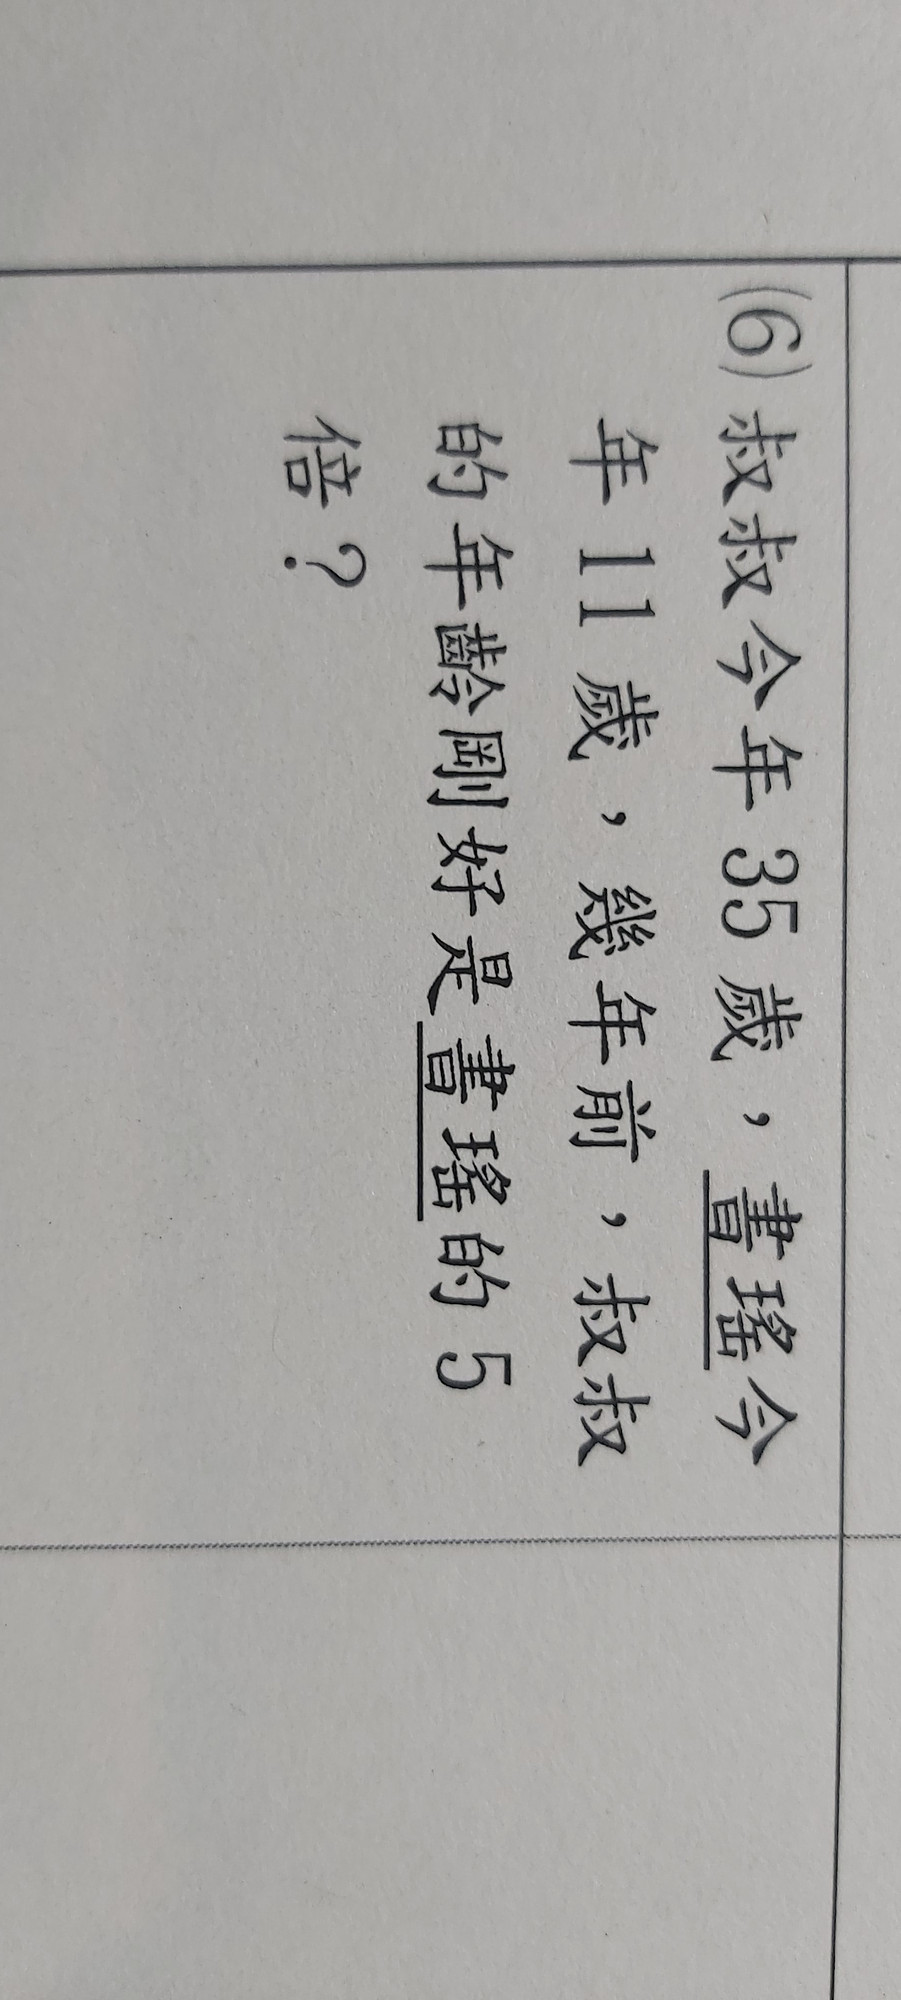 (6)叔叔今年35歲，書瑤今
年11歲，幾年前，叔叔
的年齡剛好是書瑤的5
倍？